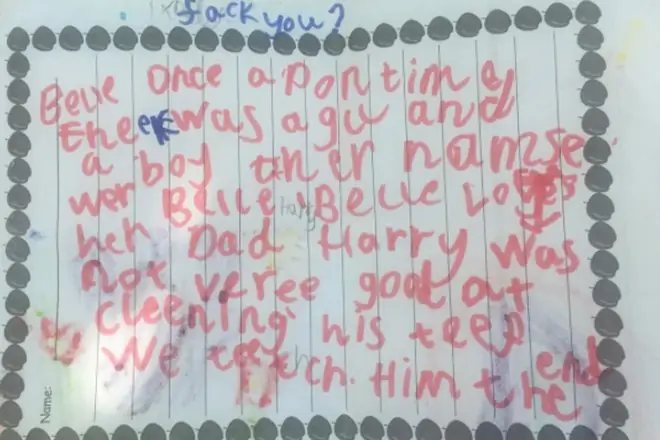 fuck you?
Belle Once a pon tim a
there was a gu and
a boy ther namse
wer Belle Harry Belle Loves
heh Dad Harry was
not veree good at
cleening his teep
We teetch. Him the end
Name: